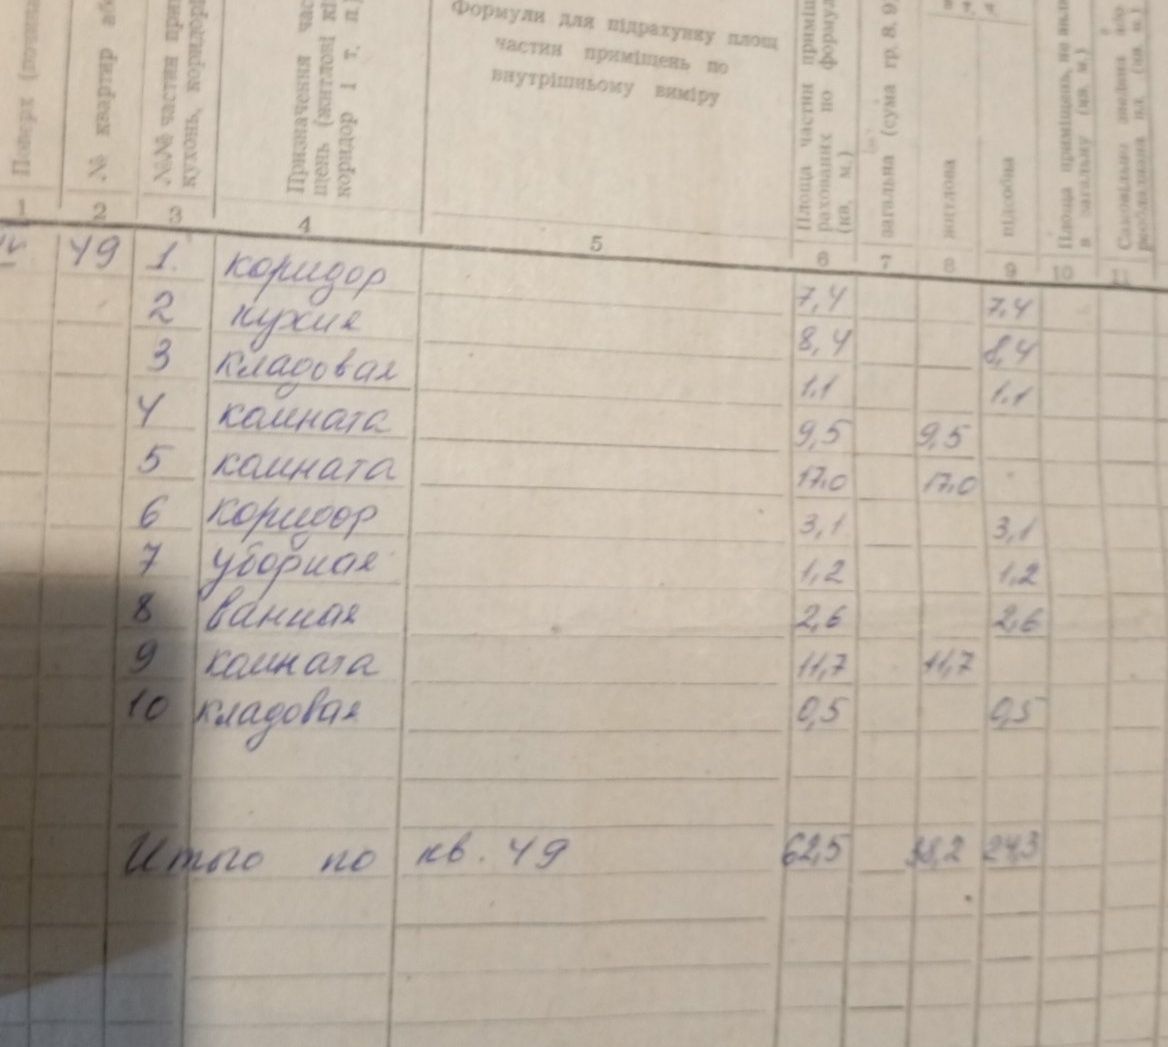 Поверх
№ квартир
№№ частин
кухонь, коридорів
Призначення час
щень (житлові кі
коридор і т. п.
Формули для підрахунку площ
частин приміщень по
внутрішньому виміру
Площа частин приміщ
рахованих по формул
(кв. м.)
загальна (сума гр. 8, 9,
житлова
підсобна
Площа приміщень, не
в загальну (кв. м.)
1 2 3 4 5 6 7 8 9 10 11
49 1. коридор 7,4 7,4
2 кухня 8,4 8,4
3 кладовая 1.1 1.1
4 комната 9,5 9,5
5 комната 17.0 17.0
6 коридор 3,1 3,1
7 уборная 1,2 1,2
8 ванная 2,6 2,6
9 комната 11,7 11,7
10 кладовая 0,5 0,5
Итого по кв. 49 62,5 38,2 24,3